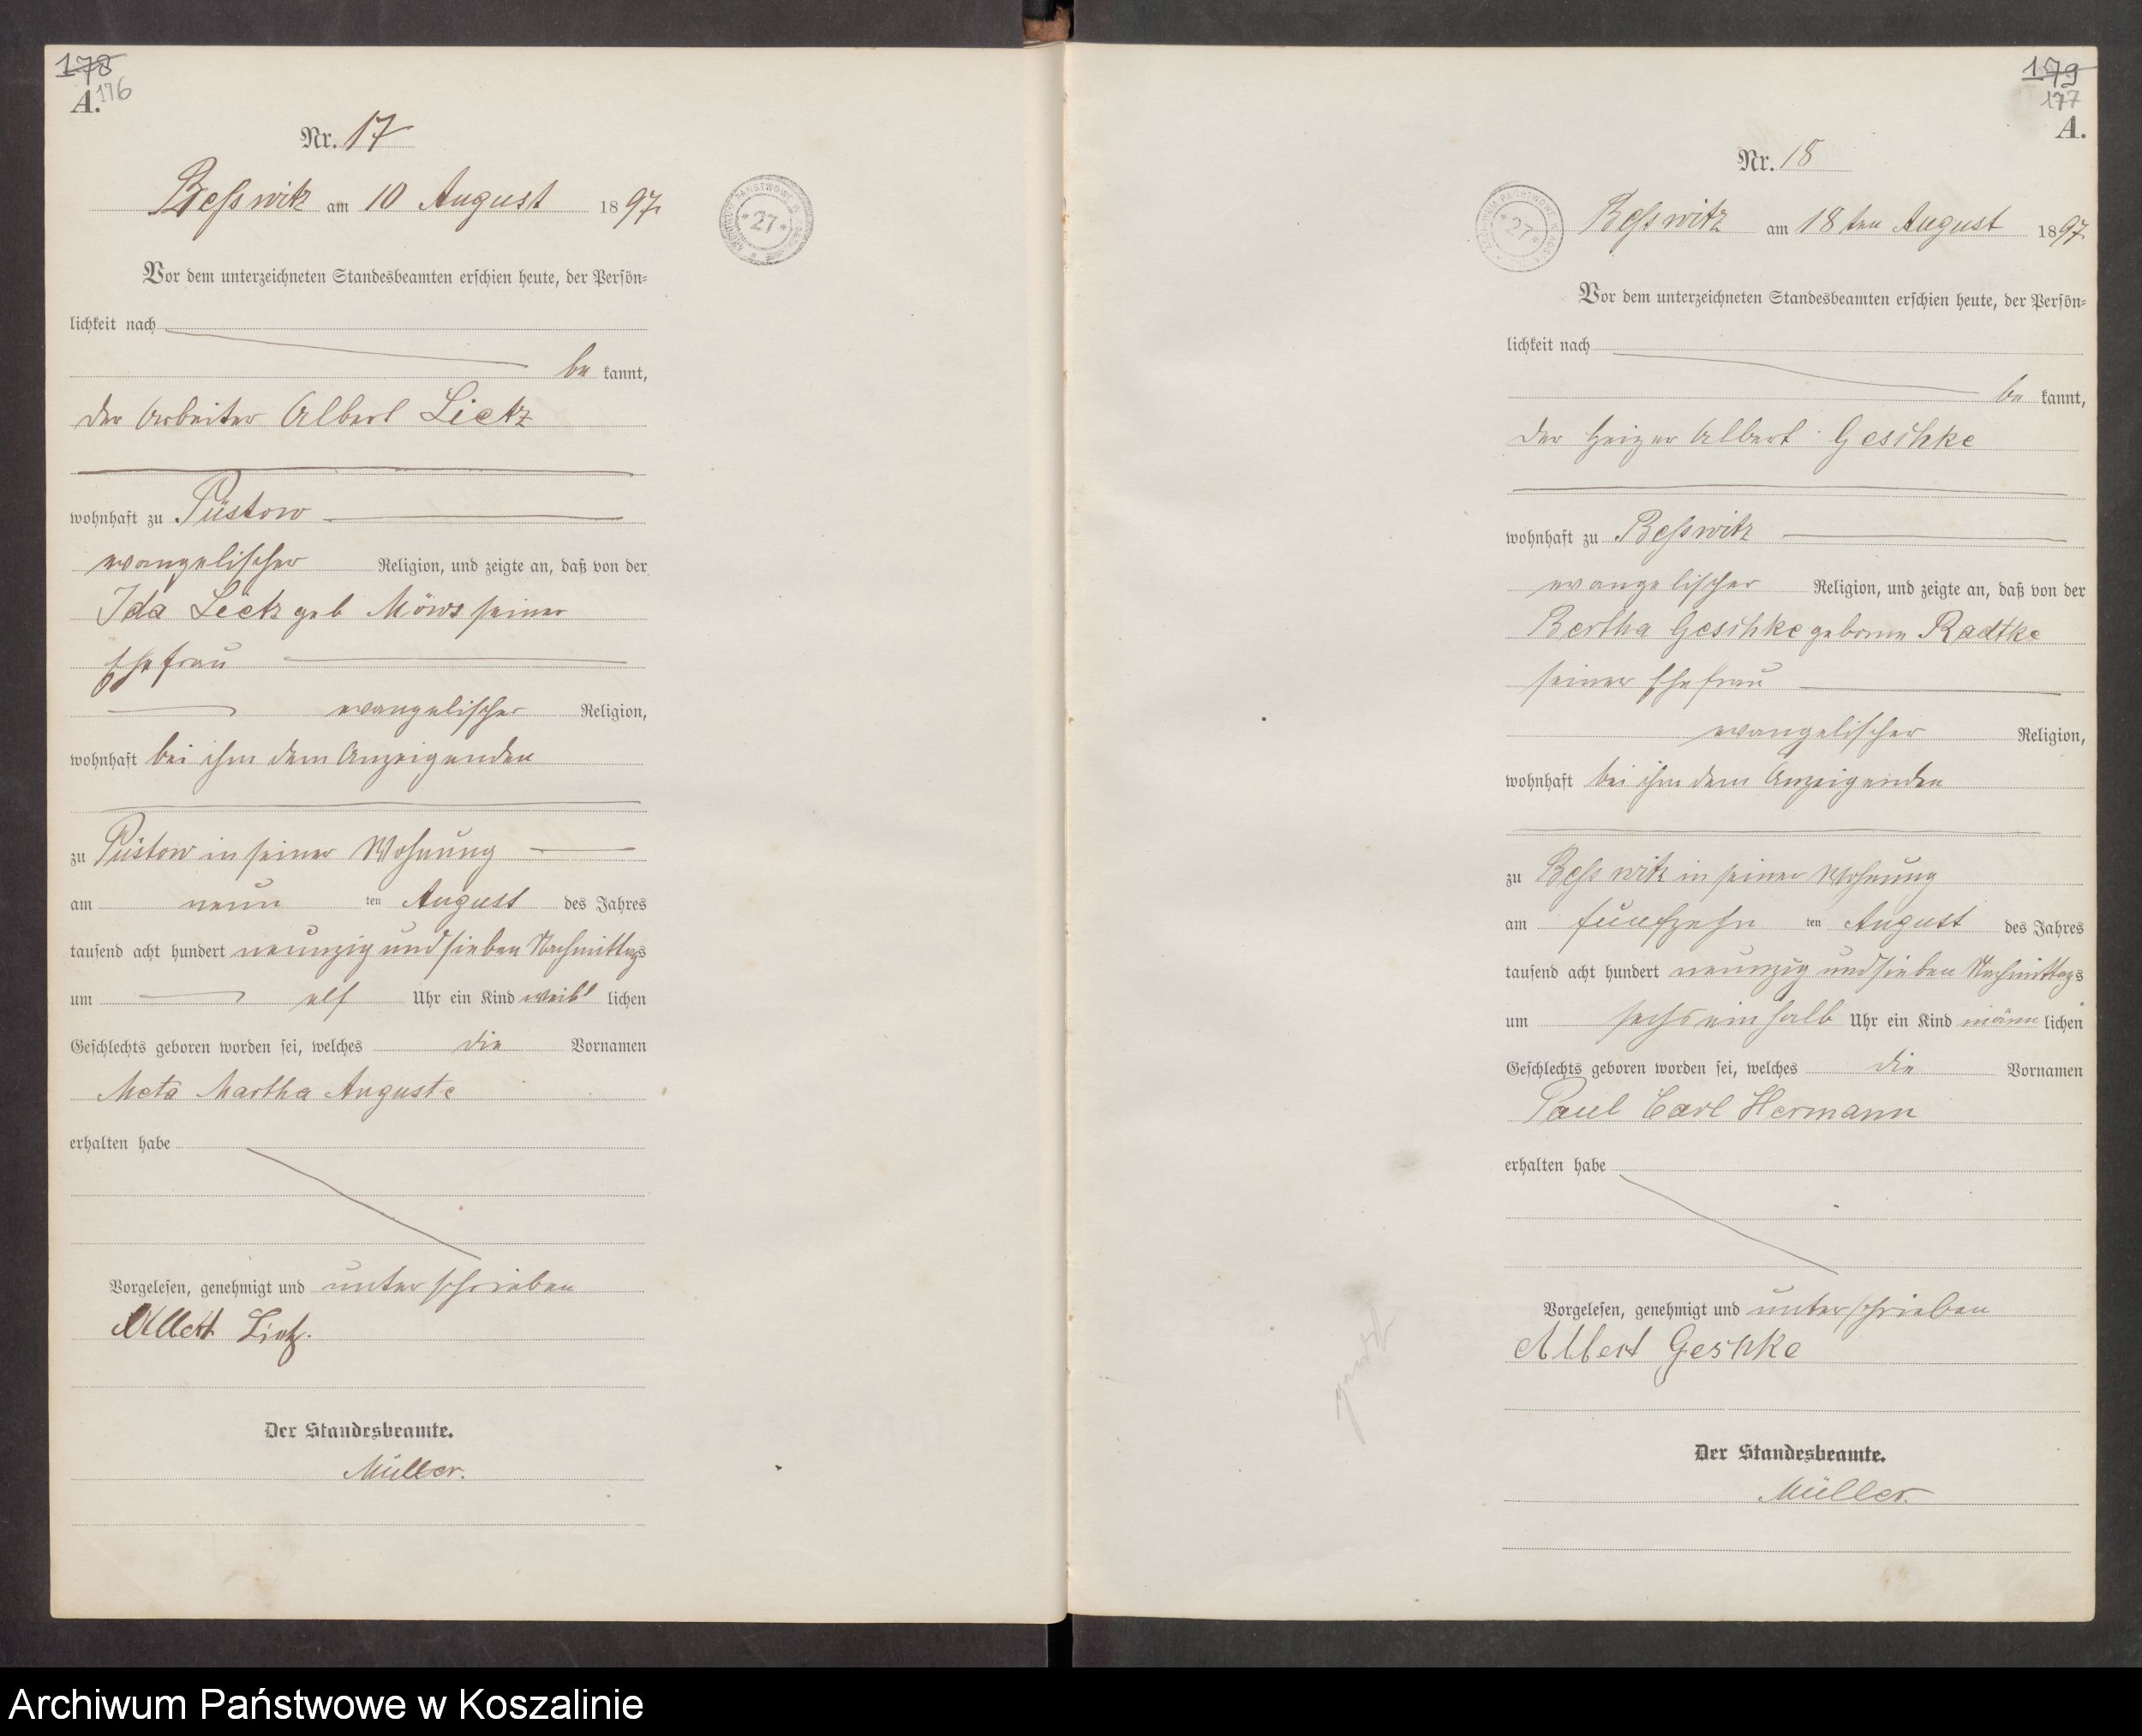 178
176
A.
Nr. 17
Beßwitz am 10 August 1897.
ARCHIWUM PAŃSTWOWE
* 27 *
Vor dem unterzeichneten Standesbeamten erschien heute, der Persön-
lichkeit nach
be kannt,
der Arbeiter Albert Lietz
wohnhaft zu Püstow
evangelischer Religion, und zeigte an, daß von der
Ida Lietz geb Möws seiner
Ehefrau
evangelischer Religion,
wohnhaft bei ihm dem Anzeigenden
zu Püstow in seiner Wohnung
am neun ten August des Jahres
tausend acht hundert neunzig und sieben Nachmittags
um elf Uhr ein Kind weibl lichen
Geschlechts geboren worden sei, welches die Vornamen
Meta Martha Auguste
erhalten habe
Vorgelesen, genehmigt und unterschrieben
Albert Lietz.
Der Standesbeamte.
Müller.
179
177
A.
Nr. 18
Beßwitz am 18ten August 1897.
* 27 *
Vor dem unterzeichneten Standesbeamten erschien heute, der Persön-
lichkeit nach
be kannt,
der Heizer Albert Geschke
wohnhaft zu Beßwitz
evangelischer Religion, und zeigte an, daß von der
Bertha Geschke geborne Radtke
seiner Ehefrau
evangelischer Religion,
wohnhaft bei ihm dem Anzeigenden
zu Beßwitz in seiner Wohnung
am fünfzehn ten August des Jahres
tausend acht hundert neunzig und sieben Nachmittags
um sechs ein halb Uhr ein Kind männ lichen
Geschlechts geboren worden sei, welches die Vornamen
Paul Carl Hermann
erhalten habe
Vorgelesen, genehmigt und unterschrieben
Albert Geschke
Der Standesbeamte.
Müller.
Archiwum Państwowe w Koszalinie